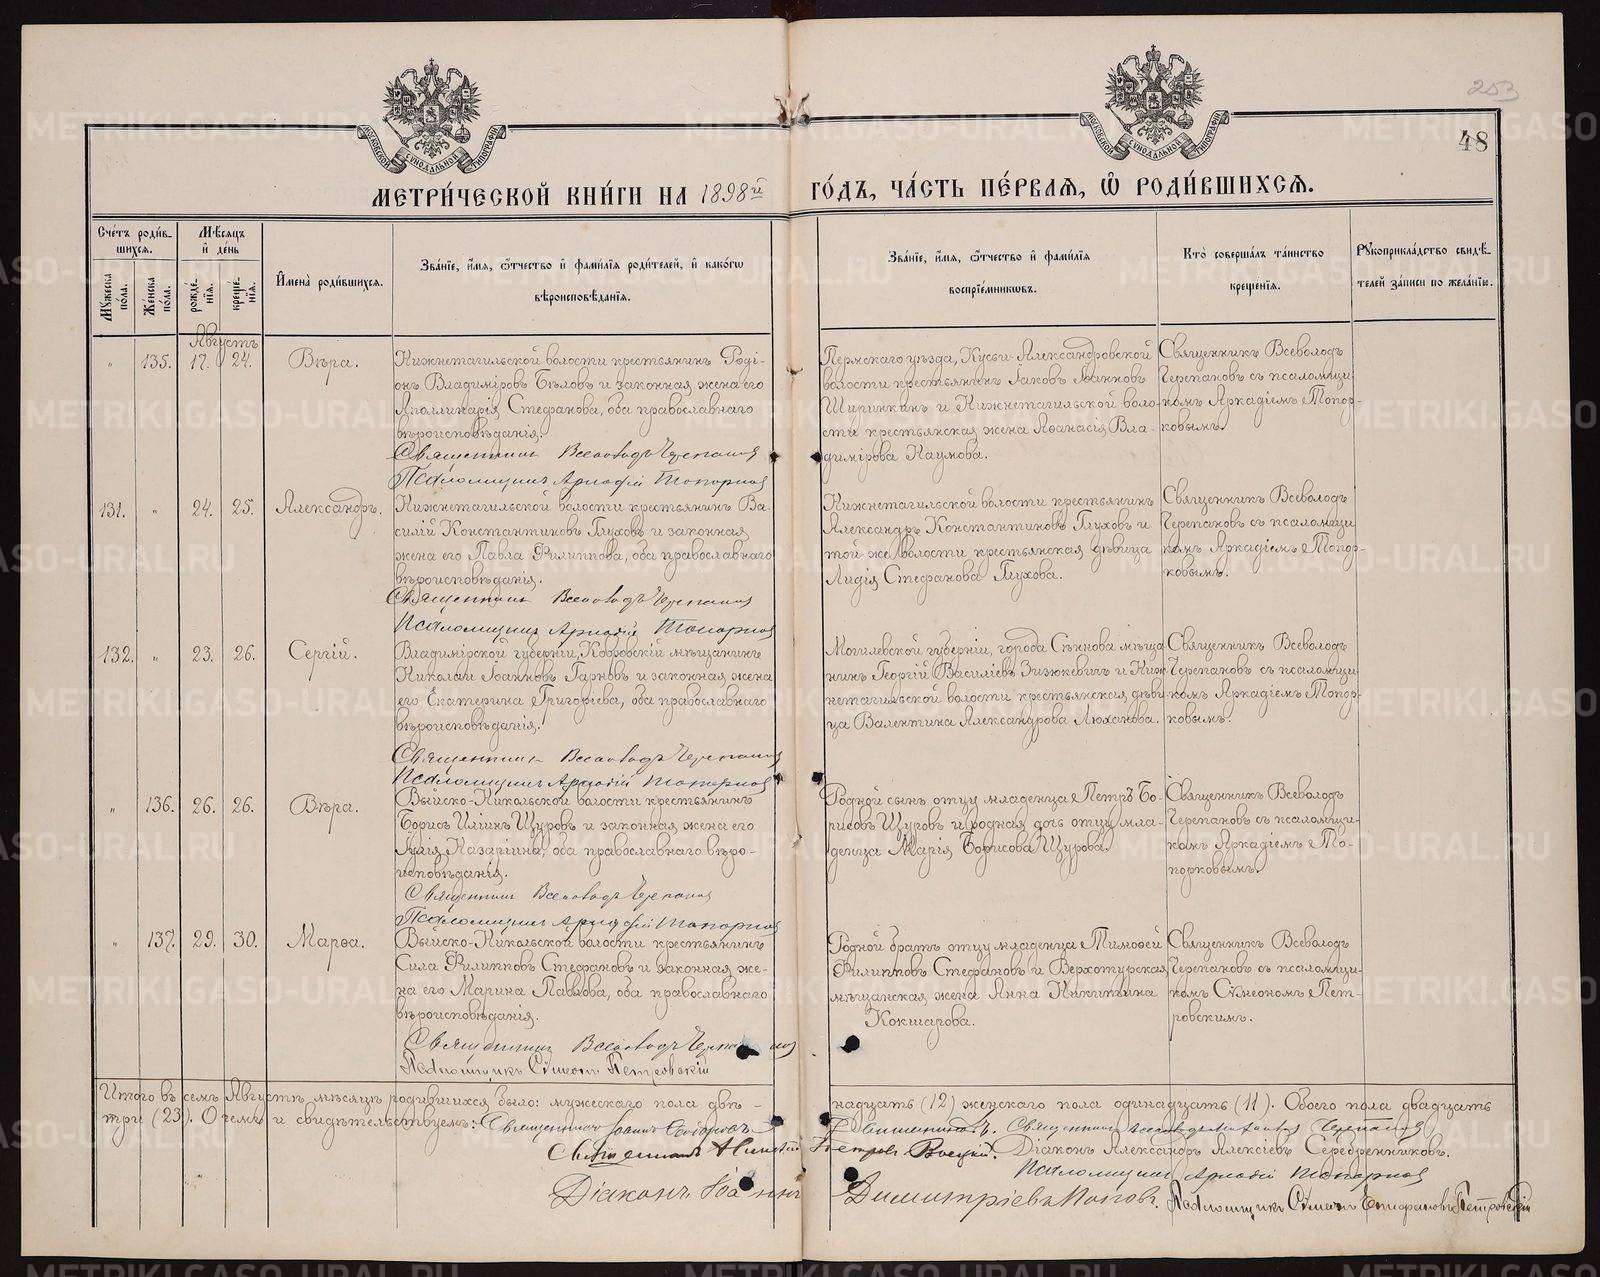 253
48
МОСКОВСКОЙ СѴНОДАЛЬНОЙ ТИПОГРАФІИ
МОСКОВСКОЙ СѴНОДАЛЬНОЙ ТИПОГРАФІИ
МЕТРИ́ЧЕСКОЙ КНИ́ГИ НА 1898й ГО́ДЪ, ЧА́СТЬ ПЕ́РВАѦ, Ѡ҆ РОДИ́ВШИХСѦ.
Сче́тъ роди́в-
шихсѧ.
Мꙋжеска по́ла.
Же́нска по́ла.
Мѣ́сѧцъ
и҆ де́нь
рожде́-
нїѧ.
креще́-
нїѧ.
И҆мена̀ роди́вшихсѧ.
Зва́нїе, и҆́мѧ, ѻ҆́тчество и҆ фами́лїѧ роди́телей, и҆ како́гѡ
вѣроисповѣ́данїѧ.
Зва́нїе, и҆́мѧ, ѻ҆́тчество и҆ фами́лїѧ
воспрїе́мникѡвъ.
Кто̀ соверша́лъ та́инство
креще́нїѧ.
Рꙋкоприкла́дство свидѣ́-
телей за́писи по жела́нїю.
Августъ
" 135. 17. 24. Вѣра.
Нижнетагильской волости крестьянинъ Роді-
онъ Владиміровъ Бѣловъ и законная жена его
Аполлинарія Стефанова, оба православнаго
вѣроисповѣданія.
Священникъ Всеволодъ Черепановъ
Псаломщикъ Аркадій Топорковъ
Пермскаго уѣзда, Кусьи-Александровской
волости крестьянинъ Іаковъ Іоанновъ
Ширинкинъ и Нижнетагильской воло-
сти крестьянская жена Аѳанасія Вла-
димірова Наумова.
Священникъ Всеволодъ
Черепановъ съ псаломщи-
комъ Аркадіемъ Топор-
ковымъ.
131. " 24. 25. Александръ.
Нижнетагильской волости крестьянинъ Ва-
силій Константиновъ Глуховъ и законная
жена его Павла Филиппова, оба православнаго
вѣроисповѣданія.
Священникъ Всеволодъ Черепановъ
Псаломщикъ Аркадій Топорковъ
Нижнетагильской волости крестьянинъ
Александръ Константиновъ Глуховъ и
той-же волости крестьянская дѣвица
Лидія Стефанова Глухова.
Священникъ Всеволодъ
Черепановъ съ псаломщи-
комъ Аркадіемъ Топор-
ковымъ.
132. " 23. 26. Сергій.
Владимірской губерніи, Ковровскій мѣщанинъ
Николай Іоанновъ Гарновъ и законная жена
его Екатерина Григоріева, оба православнаго
вѣроисповѣданія.
Священникъ Всеволодъ Черепановъ
Псаломщикъ Аркадій Топорковъ
Могилевской губерніи, города Сѣннова мѣща
нинъ Георгій Василіевъ Зизюкевичъ и Ниж-
нетагильской волости крестьянская дѣви-
ца Валентина Александрова Люханова.
Священникъ Всеволодъ
Черепановъ съ псаломщи-
комъ Аркадіемъ Топор-
ковымъ.
" 136. 26. 26. Вѣра.
Выйско-Никольской волости крестьянинъ
Борисъ Иліинъ Щуровъ и законная жена его
Іулія Назаріина, оба православнаго вѣро-
исповѣданія.
Священникъ Всеволодъ Черепановъ
Псаломщикъ Аркадій Топорковъ
Родной сынъ отцу младенца Петръ Бо-
рисовъ Щуровъ и родная дочь отцу мла-
денца Марія Борисова Щурова.
Священникъ Всеволодъ
Черепановъ съ псаломщи-
комъ Аркадіемъ То-
порковымъ.
" 137. 29. 30. Марѳа.
Выйско-Никольской волости крестьянинъ
Сила Филипповъ Стефановъ и законная же-
на его Марина Павлова, оба православнаго
вѣроисповѣданія.
Священникъ Всеволодъ Черепановъ
Псаломщикъ Сѵмеонъ Петровскій
Родной братъ отцу младенца Тимоѳей
Филипповъ Стефановъ и Верхотурская
мѣщанская жена Анна Никитина
Кокшарова.
Священникъ Всеволодъ
Черепановъ съ псаломщи-
комъ Сѵмеономъ Пет-
ровскимъ.
Итого въ семъ Августѣ мѣсяцѣ родившихся было: мужескаго пола двѣ-надцать (12) женскаго пола одинадцать (11). Обоего пола двадцать
три (23). О чемъ и свидѣтельствуемъ: Священникъ Іоаннъ Священникъ Всеволодъ Черепановъ
Священникъ Петровъ Діаконъ Александръ Алексіевъ Серебренниковъ.
Псаломщикъ Аркадій Топорковъ
Діаконъ Іоаннъ Димитріевъ Поповъ. Псаломщикъ Сѵмеонъ Епифановъ Петровскій
METRIKI.GASO-URAL.RU